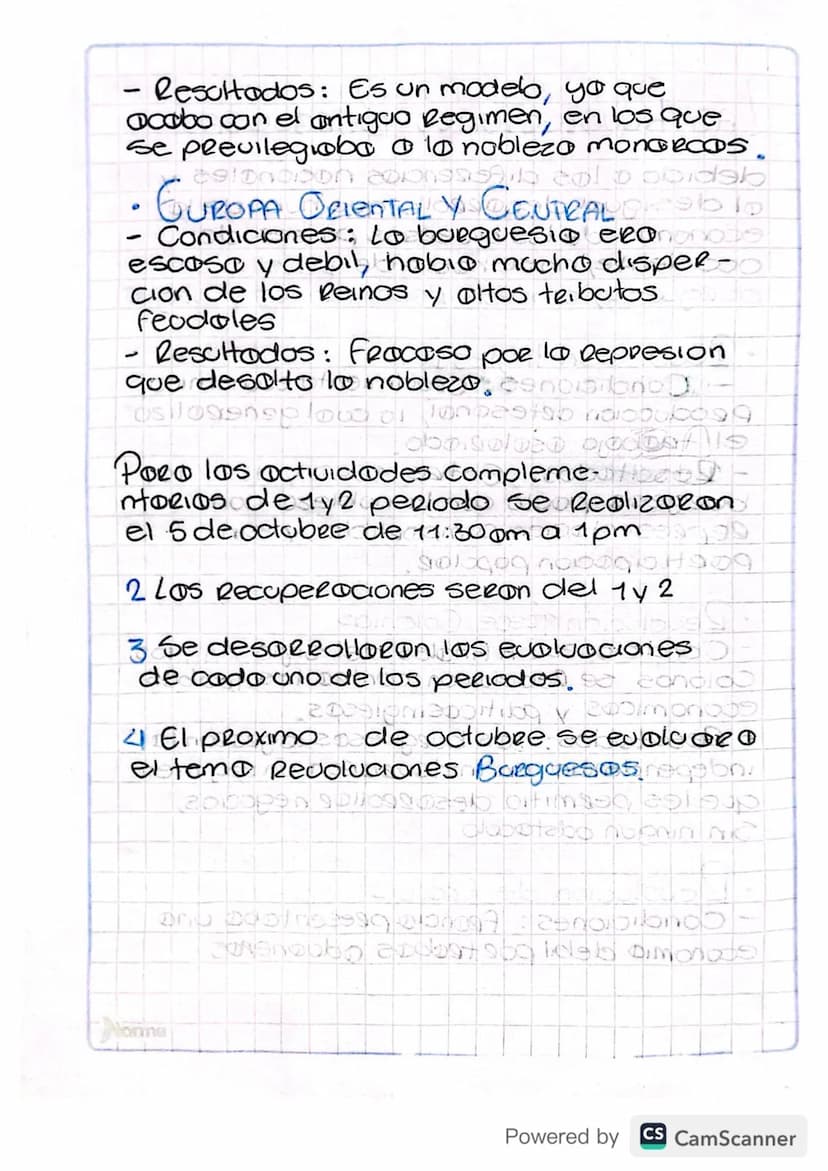 - Resultados: Es un modelo, ya que
acabo con el antiguo Regimen, en los que
se previlegiaba a la nobleza monarcas.
• EUROPA ORIENTAL Y CENTRAL
- Condiciones: La burguesia era
escasa y debil, habia mucha disper-
cion de los Reinos y altos tributos
feudales
- Resultados: Fracaso por la Repression
que desalto la nobleza.
Para las actividades compleme-
ntarias de 1 y 2 periodo se Realizaran
el 5 de octubre de 11:30am a 1pm
2 Las Recuperaciones seran del 1 y 2
3 Se desarrollaran las evaluaciones
de cada uno de los periodos.
4 El proximo de octubre se evaluara
el tema Revoluciones Burguesas.
Norma
Powered by CS CamScanner